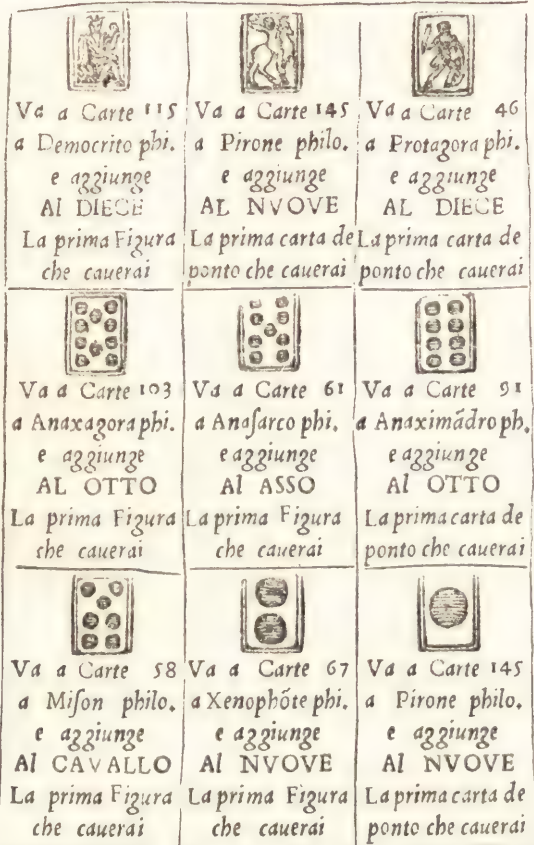 Va a Carte 115
a Democrito phi.
e aggiunge
Al DIECE
La prima Figura
che cauerai
Va a Carte 145
a Pirone philo.
e aggiunge
AL NVOVE
La prima carta de
ponto che cauerai
Va a Carte 46
a Protagora phi.
e aggiunge
AL DIECE
La prima carta de
ponto che cauerai
Va a Carte 103
a Anaxagora phi.
e aggiunge
AL OTTO
La prima Figura
che cauerai
Va a Carte 61
a Anaſarco phi.
e aggiunge
Al ASSO
La prima Figura
che cauerai
Va a Carte 91
a Anaximãdro ph.
e aggiunge
Al OTTO
La prima carta de
ponto che cauerai
Va a Carte 58
a Miſon philo.
e aggiunge
Al CAVALLO
La prima Figura
che cauerai
Va a Carte 67
a Xenophõte phi.
e aggiunge
Al NVOVE
La prima Figura
che cauerai
Va a Carte 145
a Pirone philo.
e aggiunge
Al NVOVE
La prima carta de
ponto che cauerai